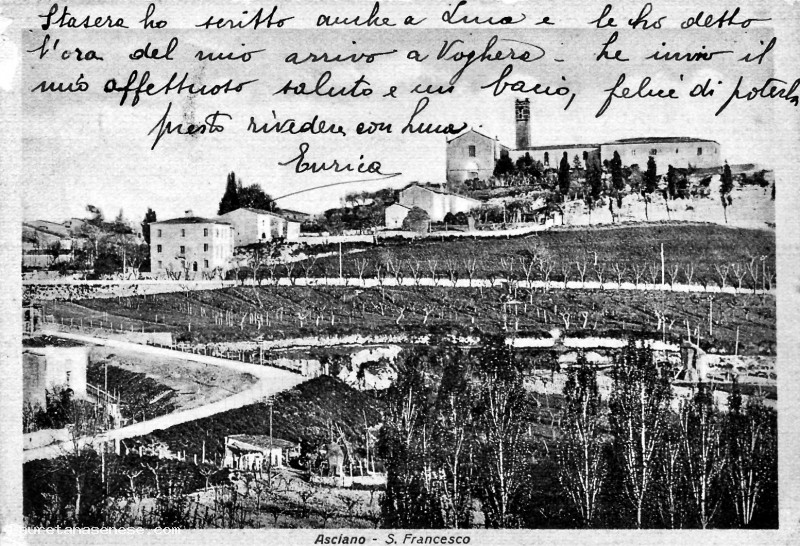 Stasera ho scritto anche a Luca e le ho detto
l'ora del mio arrivo a Voghera – Le invio il
mio affettuoso saluto e un bacio, felice di poterla
presto rivedere con Luca
Enrica
Asciano - S. Francesco